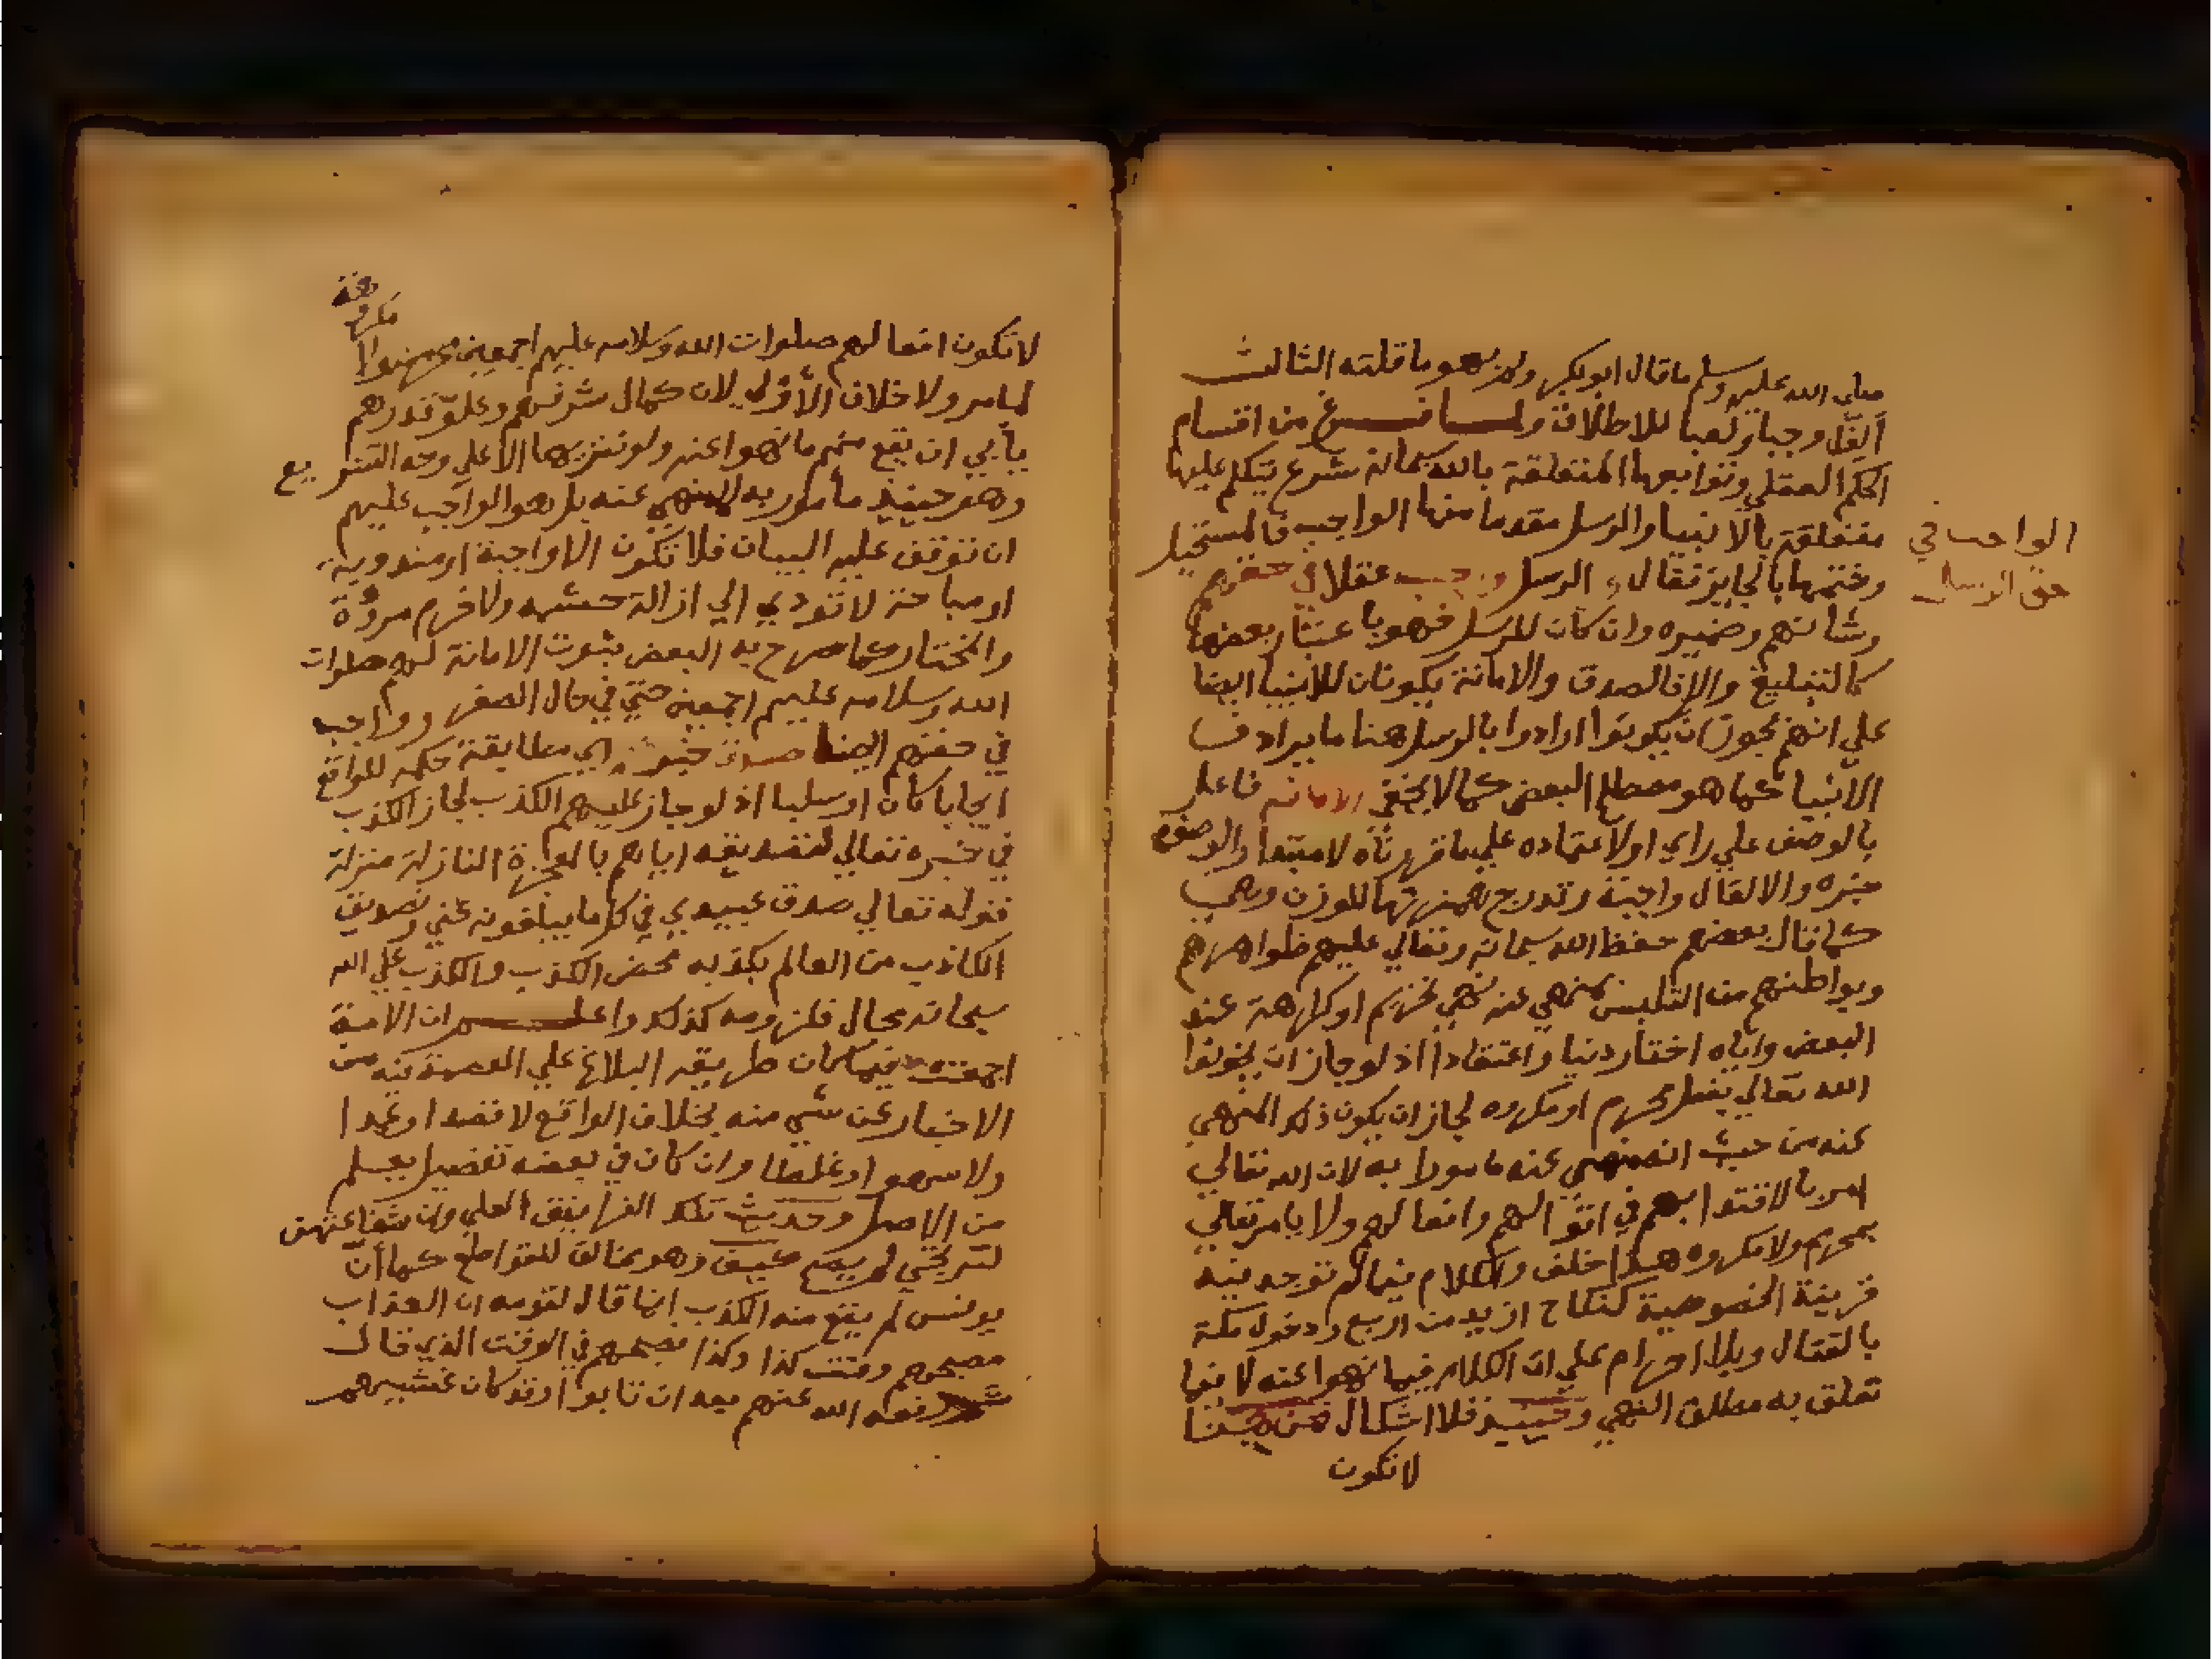 صلي الله عليه وسلم ما قال ابو بكر ولم يهو ما قلته الثالث
الف وجبا ولعبا للاطلاق ولما فرغ من اقسام
الحكم العقلي وتوابعها المتعلقة بالله سبحانه شرع يتكلم عليها
متعلقة بالانبيا والرسل مقدما منها الواجب فالمستحيل
وختمها بالجايز فقال و الرسل وجب عقلا في حقهم
وشانهم وضميره وان كان للرسل فهو باعتبار بعضها
كالتبليغ والا فالصدق والامانة يكونان للانبيا ايضا
علي انهم يجوز ان يكونوا ارادوا بالرسل هنا ما يرادف
الانبيا كما هو مصطلح البعض كما لا يخفي الامانه فاعل
بالوصف علي راي او لاعتماده علي ما قررناه لا مبتدا والوصف
خبره والا لقال واجبة وتدرج همزتها للوزن وهي
كما قال بعضهم حفظ الله سبحانه وتعالي عليهم ظواهرهم
وبواطنهم من التلبس بمنهي عنه نهي تحريم او كراهة عند
البعض واياه اختار دنيا واعتقادا اذ لو جاز ان يخونوا
الله تعالي بفعل محرم او مكروه لجاز ان يكون ذلك المنهي
عنه من حيث انه منهي عنه مامورا به لان الله تعالي
امر بالاقتدا بهم في اقوالهم وافعالهم ولا يامر تعالي
بمحرم ولا مكروه هذا خلف والكلام فيما لم توجد فيه
قرينة الخصوصية كنكاح ازيد من اربع ودخول مكة
بالقتال وبلا احرام علي ان الكلام فيما نهوا عنه لا فيما
تعلق به مطلق النهي وحينيذ فلا اشكال
لا تكون
الواجب في
حق الرسل
مكروهة
لا تكون افعالهم صلوات الله وسلامه عليهم اجمعين
لما مر ولا خلاف الأولي لان كمال شرفهم وعلو قدرهم
يأبي ان يقع منهم ما نهوا عنه ولو تنزيها الا علي وجه التشريع
وهو حينيذ مأمور به لا منهي عنه بل هو الواجب عليهم
ان توقف عليه البيان فلا تكون الا واجبة او مندوبة
او مباحة لا تودي الي ازالة حشمه ولا خرم مروءة
والمختار كما صرح به البعض ثبوت الامانة لهم صلوات
الله وسلامه عليهم اجمعين حتي في حال الصغر وواجب
في حقهم ايضا صدق خبر اي مطابقة حكمه للواقع
ايجابا كان او سلبا اذ لو جاز عليهم الكذب لجاز الكذب
في خبره تعالي لتصديقه اياهم بالمعجزة النازلة منزلة
قوله تعالي صدق عبيدي في كل ما يبلغونه عني وتصديق
الكاذب من العالم بكذبه محض الكذب والكذب علي الله
سبحانه محال فلزومه كذلك واعلم ان الامة
اجمعت فيما كان طريقه البلاغ علي العصمة فيه من
الاخبار عن شي منه بخلاف الواقع لا قصدا وعمدا
ولا سهوا او غلطا وان كان في بعضه تفصيل يعلم
من الاصل وحديث تلك الغرانيق العلي وان شفاعتهن
لترتجي لم يصح كيف وهو مخالف للقواطع كما أن
يونس لم يقع منه الكذب انما قال لقومه ان العذاب
مصبحهم وقت كذا وكذا فصبحهم في الوقت الذي قال
ثم رفعه الله عنهم بعد ان تابوا وقد كان غشيهم